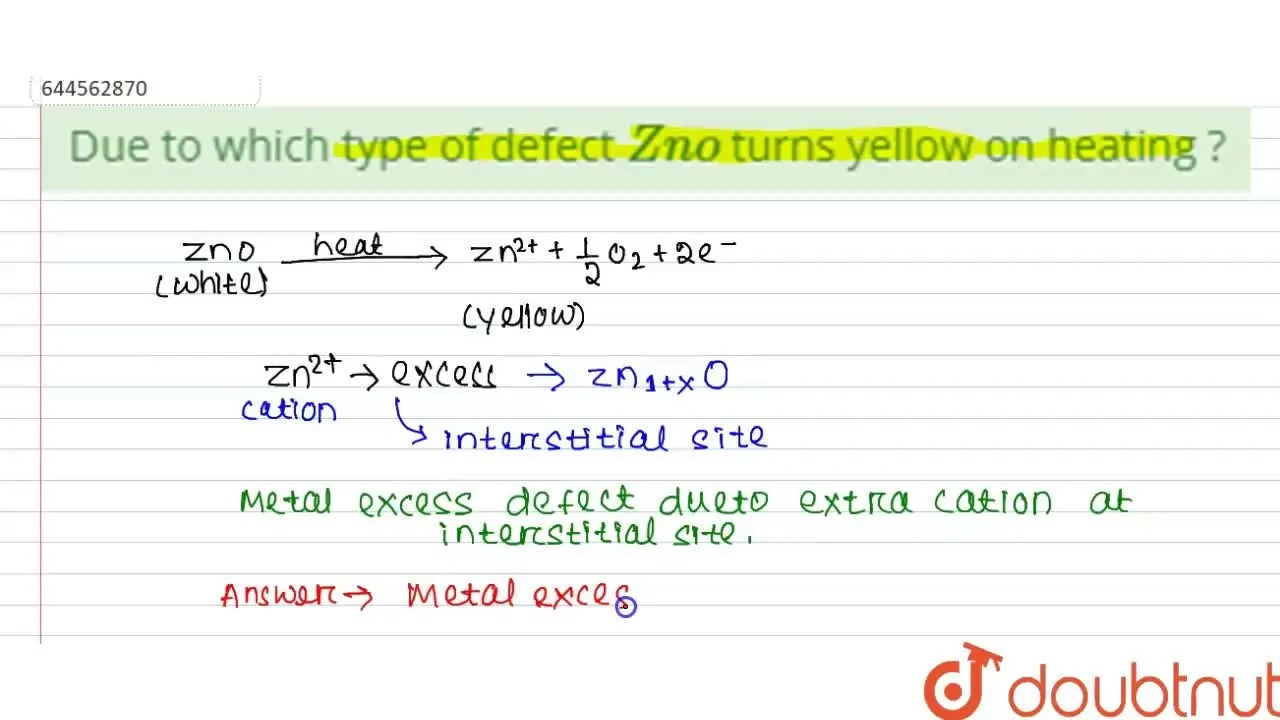 644562870
Due to which type of defect Zno turns yellow on heating ?
ZnO heat → Zn²⁺ + 1/2 O₂ + 2e⁻
(White)
(yellow)
Zn²⁺ → excess → Zn₁₊ₓO
cation
interstitial site
Metal excess defect dueto extra cation at
interstitial site.
Answer → Metal exces
doubtnut